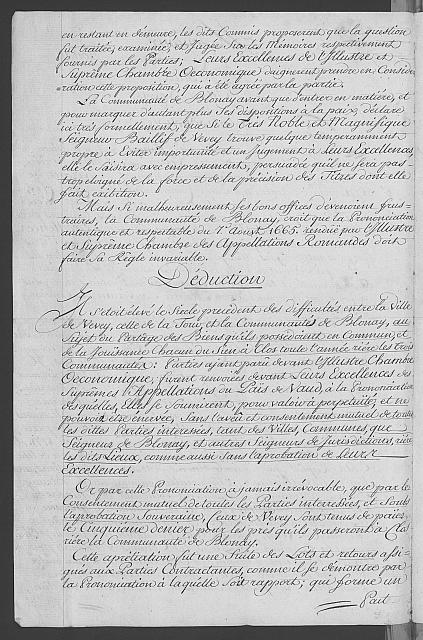 en restant en demeure, les dits Commis proposerent que la question
fut traitée, examinée, et jugée sur les Mémoires respectivement
fournis par les Parties; Leurs Excellences de l'Illustre et
Suprême Chambre Oeconomique daignerent prendre en Considé-
ration cette proposition, qui a été agréée par la partie.
La Communauté de Blonay avant que d'entrer en matière, et
pour marquer d'autant plus ses dispositions à la paix, déclare
ici très formellement, que si le Très Noble et Magnifique
Seigneur Baillif de Vevey trouve quelque temperamment
propre à Eviter importunité et un Jugement à Leurs Excellences
elle le saisira avec empressement, persuadée qu'il ne sera pas
trop éloigné de la force et de la précision des Titres dont elle
fait exibition.
Mais si malheureusement ses bons offices devenoient frus-
traires, la Communauté de Blonay, croit que la Prononciation
autentique et respectable du 1r Aoust 1665. rendüe par l'Illustre
et Suprême Chambre des Appellations Romandes doit
faire sa Règle invariable.
Déduction
Il s'étoit élevé le Siecle precédent des difficultés entre la Ville
de Vevey, celle de la Tour, et la Communauté de Blonay, au
Sujet du Partage des Biens qu'ils possedoient en Commun, et
de la Jouissance chacun du Sien à Clos toute l'année rière les trois
Communautés: Parties ayant paru devant l'Illustre Chambre
Oeconomique, furent renvoiées devant Leurs Excellences des
Suprêmes Appellations du Païs de Vaud, à la Prononciation
desquelles, Elles se soumirent, pour valoir à perpétuité et ne
pouvoir etre enervée, sans l'aveu et consentement mutuel de toutes
les dittes Parties interessées, tant des Villes, Communes, que
Seigneur de Blonay, et autres Seigneurs de Jurisdictions, rière
les dits Lieux, comme aussi sans l'aprobation de Leurs
Excellences.
Or par cette Prononciation à jamais irrévocable, que par le
Consentement mutuel de toutes les Parties interressées, et sous
l'aprobation Souveraine, Ceux de Vevey sont tenus de paier
le Cinquieme denier pour les prés qu'ils passeront à Clos
rière la Communauté de Blonay.
Cette aprétiation fut une Suite des Lots et retours assi-
gnés aux Parties Contractantes, comme il se démontre par
la Prononciation à laquelle soit rapport; qui forme un
Pait